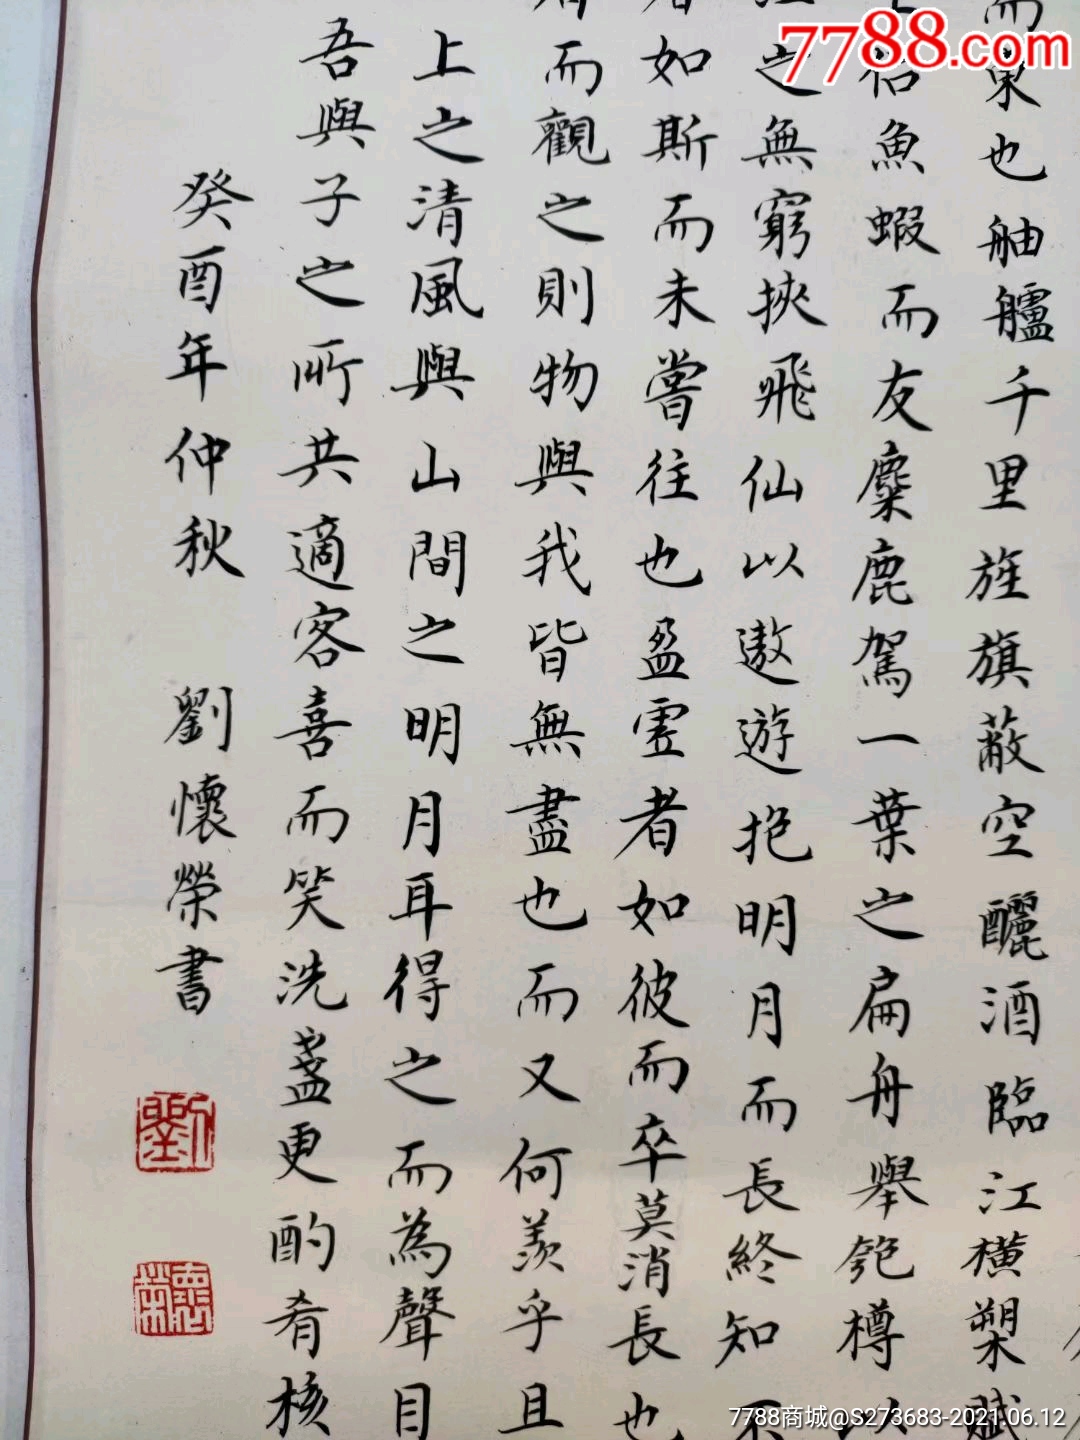 7788.com
而東也舳艫千里旌旗蔽空釃酒臨江橫槊賦
侶魚蝦而友麋鹿駕一葉之扁舟舉匏樽以
江之無窮挾飛仙以遨遊抱明月而長終知不
者如斯而未嘗往也盈虛者如彼而卒莫消長也
者而觀之則物與我皆無盡也而又何羨乎且
上之清風與山間之明月耳得之而為聲目
吾與子之所共適客喜而笑洗盞更酌肴核
癸酉年仲秋 劉懷榮書
劉
懷榮
7788商城@S273683-2021.06.12